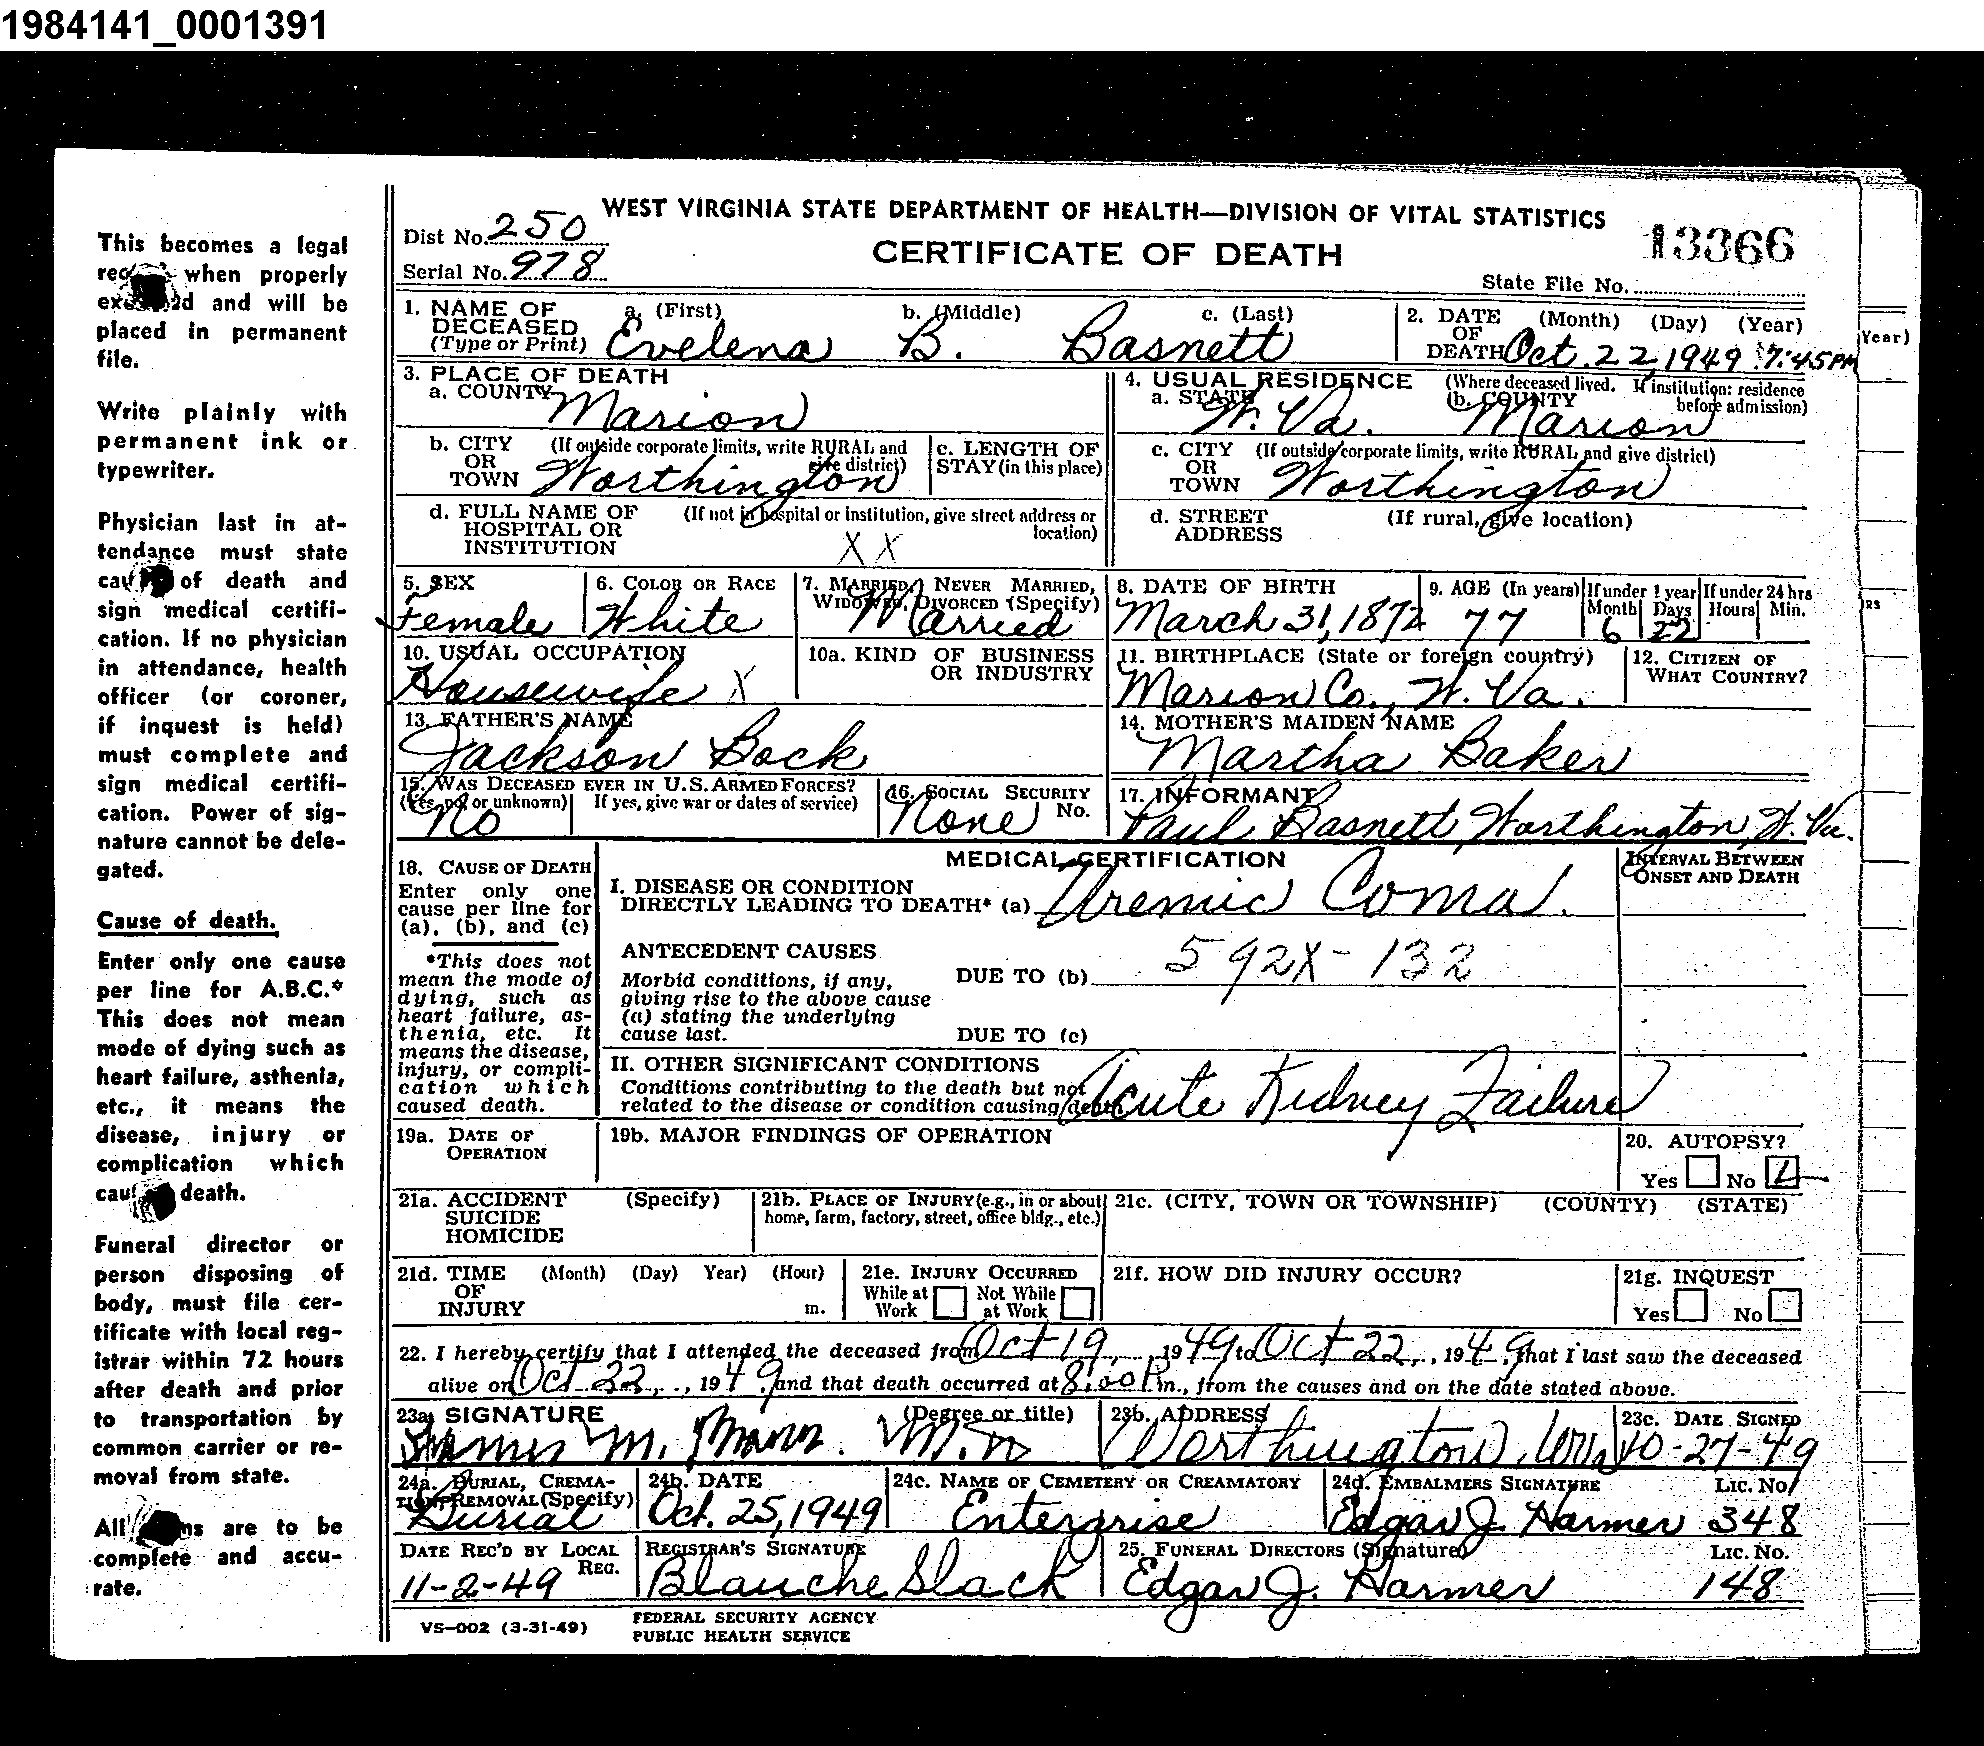 1984141_0001391
This becomes a legal
when properly
and will be
placed in permanent
file.
Write plainly with
permanent ink or
typewriter.
Physician last in at-
tendance must state
of death and
sign medical certifi-
cation. If no physician
in attendance, health
officer (or coroner,
if inquest is held)
must complete and
sign medical certifi-
cation. Power of sig-
nature cannot be dele-
gated.
Cause of death.
Enter only one cause
per line for A.B.C.*
This does not mean
mode of dying such as
heart failure, asthenia,
etc., it means the
disease, injury or
complication which
death.
Funeral director or
person disposing of
body, must file cer-
tificate with local reg-
istrar within 72 hours
after death and prior
to transportation by
common carrier or re-
moval from state.
All are to be
complete and accu-
rate.
WEST VIRGINIA STATE DEPARTMENT OF HEALTH—DIVISION OF VITAL STATISTICS
Dist No. 250
CERTIFICATE OF DEATH
13366
Serial No. 978
State File No.
1. NAME OF DECEASED (Type or Print) a. (First) b. (Middle) c. (Last)
Evelena B. Basnett
2. DATE OF DEATH (Month) (Day) (Year)
Oct. 22, 1949 7:45 PM
Year)
3. PLACE OF DEATH
a. COUNTY Marion
4. USUAL RESIDENCE (Where deceased lived. If institution: residence before admission)
a. STATE W. Va. b. COUNTY Marion
b. CITY OR TOWN (If outside corporate limits, write RURAL and give district)
Worthington
c. LENGTH OF STAY (in this place)
c. CITY OR TOWN (If outside corporate limits, write RURAL and give district)
Worthington
d. FULL NAME OF HOSPITAL OR INSTITUTION (If not in hospital or institution, give street address or location)
X X
d. STREET ADDRESS (If rural, give location)
5. SEX
Female
6. COLOR OR RACE
White
7. MARRIED, NEVER MARRIED, WIDOWED, DIVORCED (Specify)
Married
8. DATE OF BIRTH
March 31, 1872
9. AGE (In years)
77
If under 1 year
Month Days
6 22
If under 24 hrs
Hours Min.
10. USUAL OCCUPATION
Housewife X
10a. KIND OF BUSINESS OR INDUSTRY
11. BIRTHPLACE (State or foreign country)
Marion Co., W. Va.
12. CITIZEN OF WHAT COUNTRY?
13. FATHER'S NAME
Jackson Bock
14. MOTHER'S MAIDEN NAME
Martha Baker
15. WAS DECEASED EVER IN U.S. ARMED FORCES?
(Yes, no, or unknown) If yes, give war or dates of service)
No
16. SOCIAL SECURITY No.
None
17. INFORMANT
Paul Basnett, Worthington, W. Va.
18. CAUSE OF DEATH
Enter only one
cause per line for
(a), (b), and (c)
*This does not
mean the mode of
dying, such as
heart failure, as-
thenia, etc. It
means the disease,
injury, or compli-
cation which
caused death.
MEDICAL CERTIFICATION
INTERVAL BETWEEN ONSET AND DEATH
I. DISEASE OR CONDITION
DIRECTLY LEADING TO DEATH* (a) Uremic Coma.
ANTECEDENT CAUSES
Morbid conditions, if any,
giving rise to the above cause
(a) stating the underlying
cause last.
DUE TO (b) 592X-132
DUE TO (c)
II. OTHER SIGNIFICANT CONDITIONS
Conditions contributing to the death but not
related to the disease or condition causing death
Acute Kidney Failure
19a. DATE OF OPERATION
19b. MAJOR FINDINGS OF OPERATION
20. AUTOPSY?
Yes No
21a. ACCIDENT SUICIDE HOMICIDE (Specify)
21b. PLACE OF INJURY (e.g., in or about home, farm, factory, street, office bldg., etc.)
21c. (CITY, TOWN OR TOWNSHIP) (COUNTY) (STATE)
21d. TIME OF INJURY (Month) (Day) Year) (Hour) m.
21e. INJURY OCCURRED
While at Work Not While at Work
21f. HOW DID INJURY OCCUR?
21g. INQUEST
Yes No
22. I hereby certify that I attended the deceased from Oct 19, 1949 to Oct 22, 1949, that I last saw the deceased
alive on Oct 22, 1949, and that death occurred at 8:00 P.m., from the causes and on the date stated above.
23a. SIGNATURE (Degree or title)
M.
23b. ADDRESS
Worthington,
23c. DATE SIGNED
10-27-49
24a. BURIAL, CREMA-
TION, REMOVAL (Specify)
Burial
24b. DATE
Oct. 25, 1949
24c. NAME OF CEMETERY OR CREAMATORY
Enterprise
24d. EMBALMERS SIGNATURE Lic. No.
Edgar J. Harmer 348
DATE REC'D BY LOCAL REG.
11-2-49
REGISTRAR'S SIGNATURE
Blanche Slack
25. FUNERAL DIRECTORS (Signature) Lic. No.
Edgar J. Harmer 148
VS-002 (3-31-49)
FEDERAL SECURITY AGENCY
PUBLIC HEALTH SERVICE